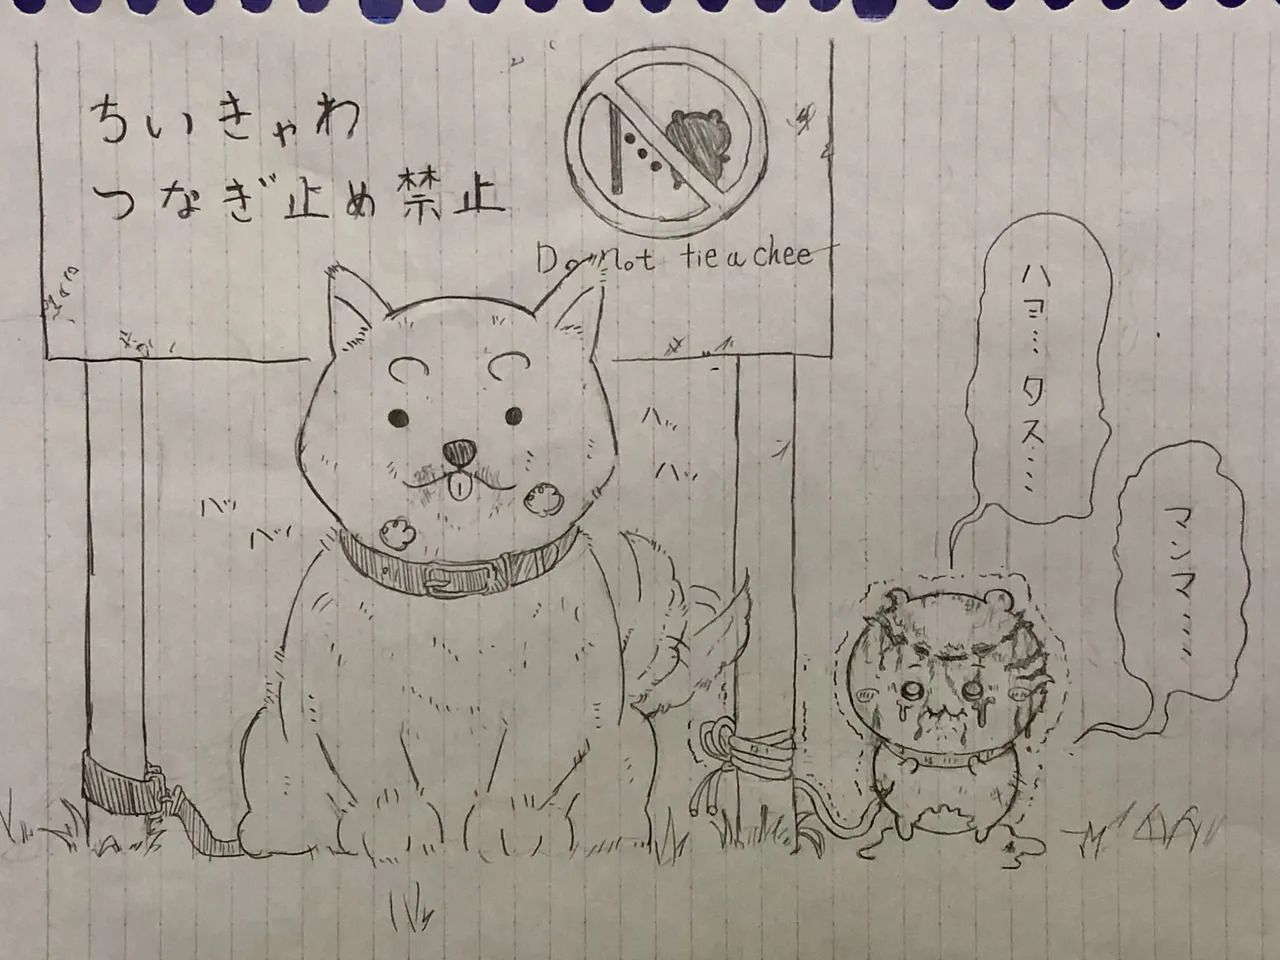 ちいきゃわ
つなぎ止め禁止
Do not tie a chee
ハヨ…タス…
マンマ……
バッ
バッ
ハッ
ハッ